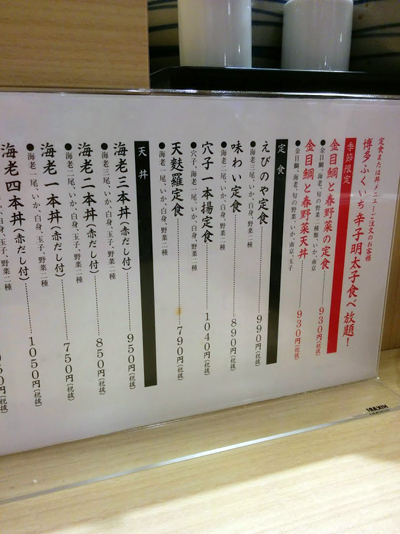 定食または丼メニューご注文のお客様
博多ふくいち辛子明太子食べ放題！
季節限定
金目鯛と春野菜の定食 930円(税抜)
金目鯛と春野菜天丼 930円(税抜)
定食
えびのや定食 990円(税抜)
●海老三尾、いか、白身、野菜二種
味わい定食 890円(税抜)
●海老二尾、いか、白身、野菜二種
穴子一本揚定食 1040円(税抜)
●穴子、海老一尾、いか、白身、野菜二種
天麩羅定食 790円(税抜)
●海老一尾、いか、白身、野菜二種
天丼
海老三本丼(赤だし付) 950円(税抜)
●海老三尾、いか、白身、玉子、野菜二種
海老二本丼(赤だし付) 850円(税抜)
●海老二尾、いか、白身、玉子、野菜二種
海老一本丼(赤だし付) 750円(税抜)
●海老一尾、いか、白身、玉子、野菜二種
海老四本丼(赤だし付) 1050円(税抜)